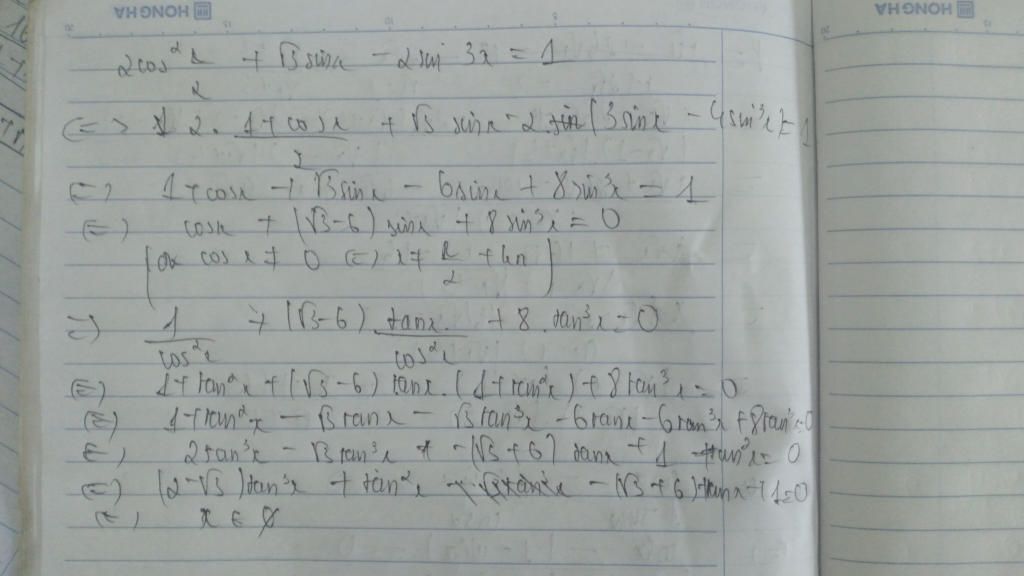 HONG HA
HONG HA
2cos² x/2 + √3 sinx - 2sin 3x = 1
<=> 2. (1+cosx)/2 + √3 sinx - 2 (3sinx - 4sin³x) = 1
<=> 1+cosx + √3sinx - 6sinx + 8sin³x = 1
<=> cosx + (√3-6) sinx + 8sin³x = 0
(đk cosx ≠ 0 <=> x ≠ π/2 + kπ)
=> 1/cos²x + (√3-6) tanx/cos²x + 8.tan³x = 0
<=> 1+tan²x + (√3-6) tanx.(1+tan²x) + 8tan³x = 0
<=> 1+tan²x - √3tanx - √3tan³x - 6tanx - 6tan³x + 8tan³x = 0
<=> 2tan³x - √3tan³x - (√3+6) tanx + 1 + tan²x = 0
<=> (2-√3)tan³x + tan²x - (√3+6)tanx + 1 = 0
<=> x ∈ ∅